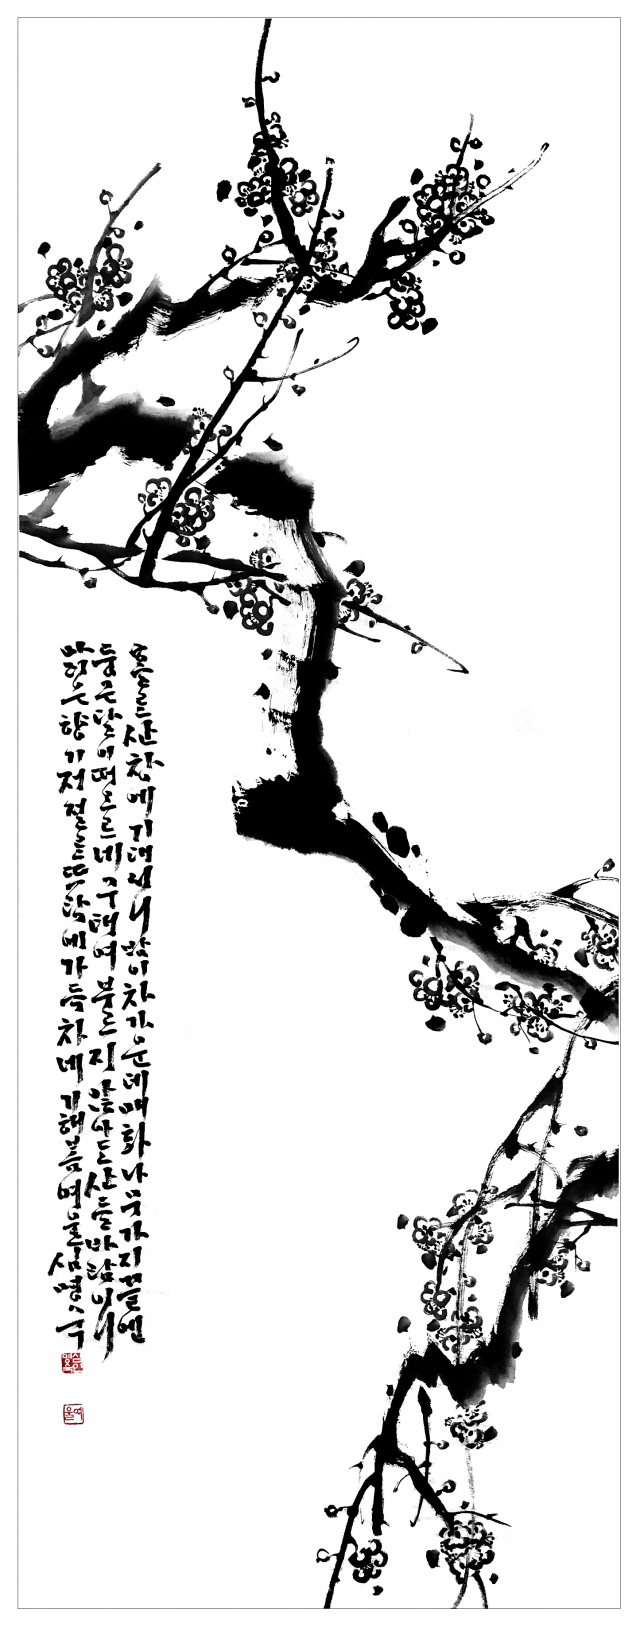 홀로 산창에 기대서니 밤이 차가운데 매화나무 가지 끝엔
둥근 달이 떠오르네 구태여 부르지 않아도 산들바람 이니
맑은 향기 저절로 뜨락에 가득 차네 기해 봄 여울 심명숙
여울